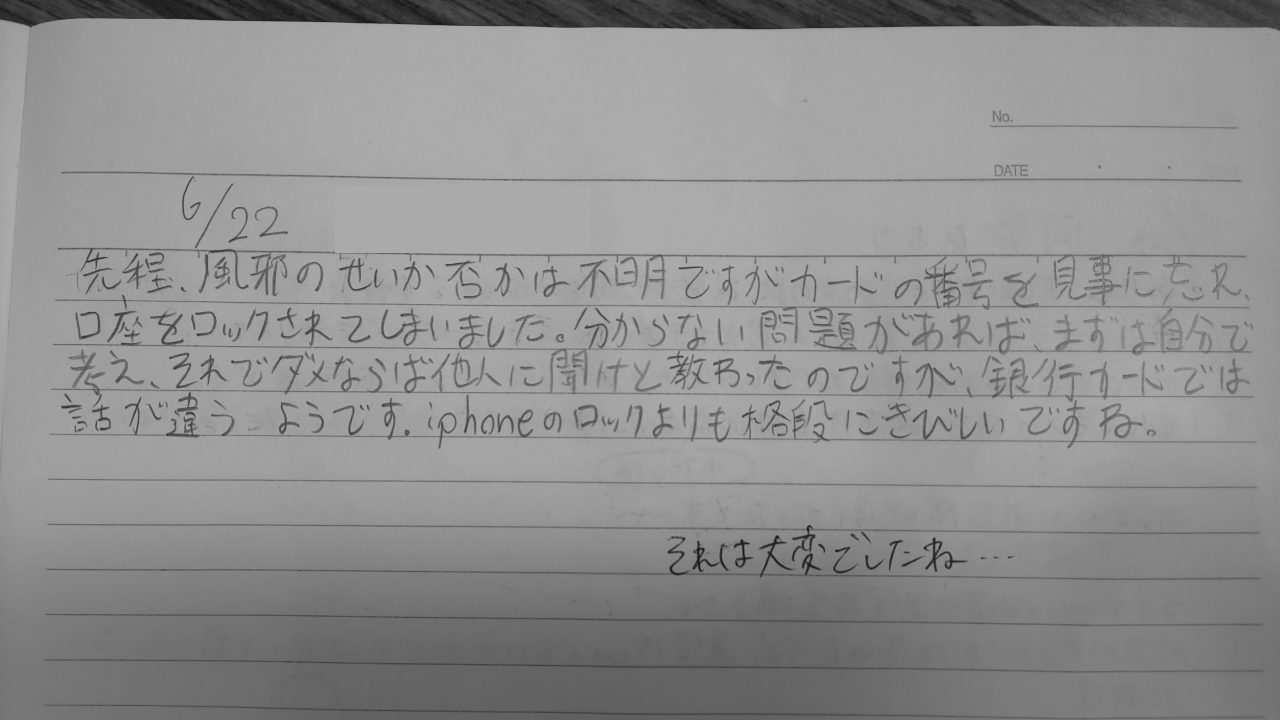 No.
DATE
6/22
先程、風邪のせいか否かは不明ですがカードの番号を見事に忘れ、
口座をロックされてしまいました。分からない問題があれば、まずは自分で
考え、それでダメならば他人に聞けと教わったのですが、銀行カードでは
話が違うようです。iphoneのロックよりも格段にきびしいですね。
それは大変でしたね…